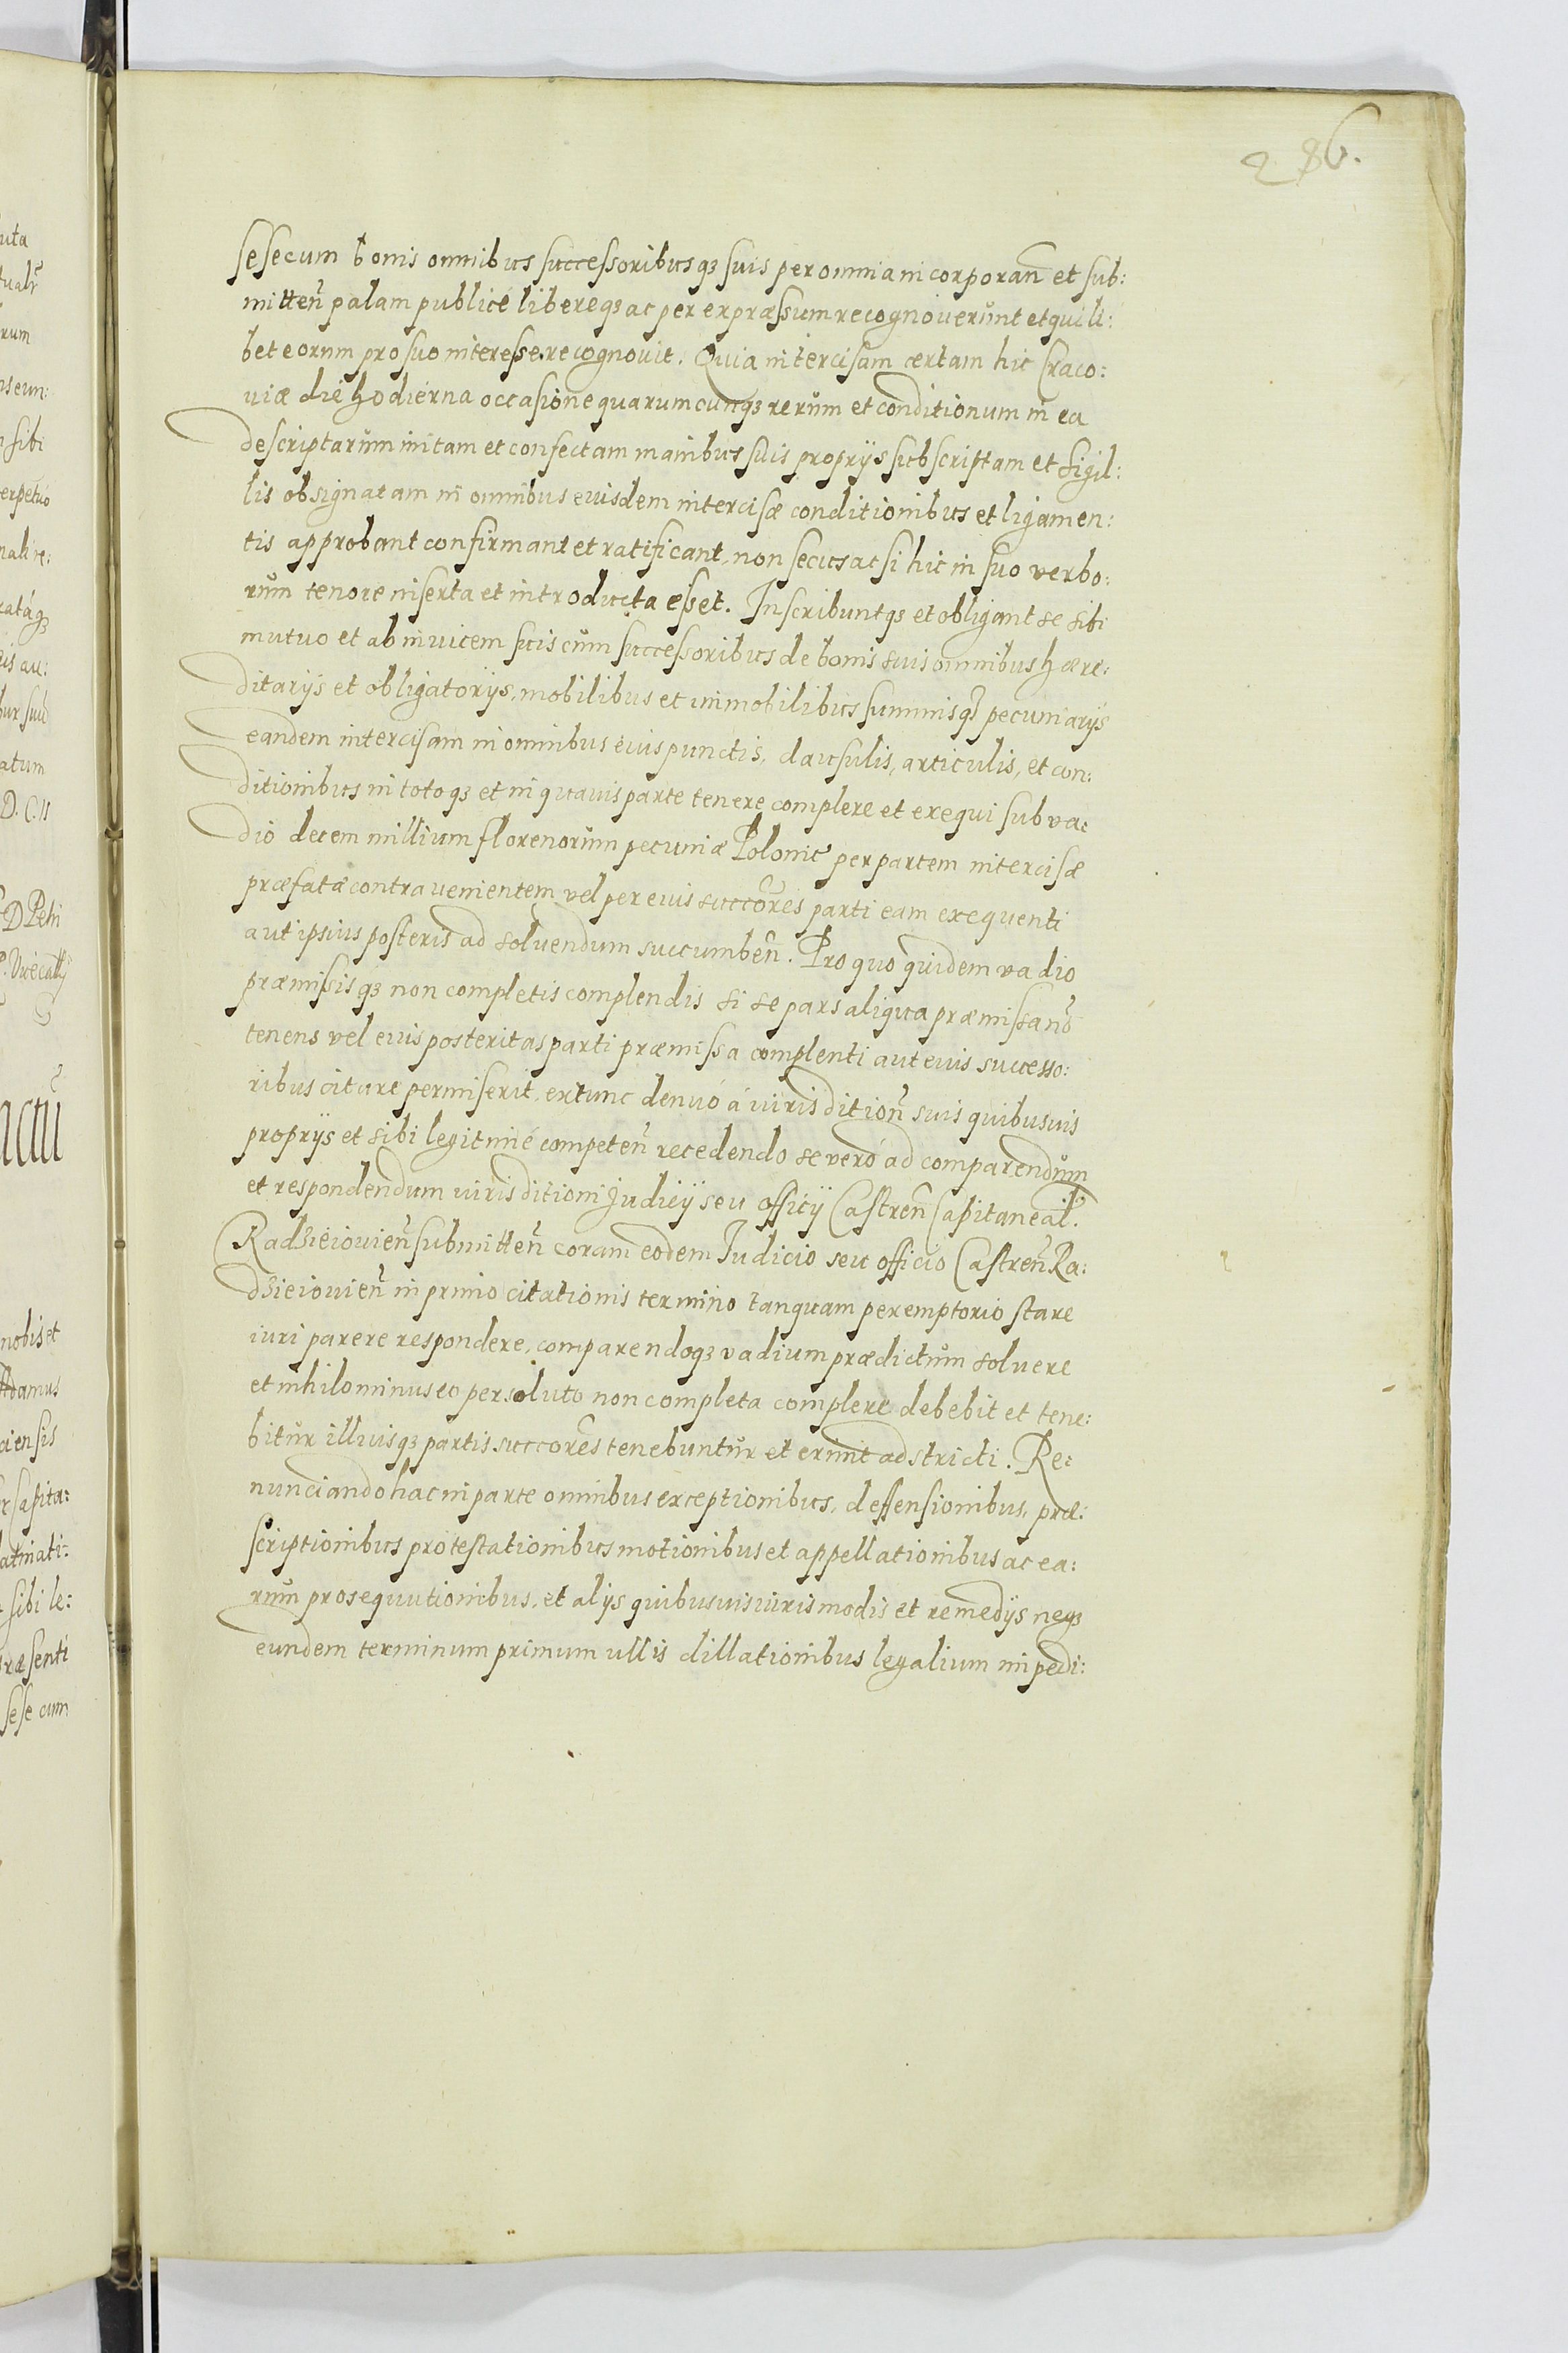 286.
sese cum bonis omnibus successoribusq3 suis per omnia incorporañ et sub:
mitteñ palam publicé libereq3 ac per expræssum recognoverunt et quili:
bet eorum pro suo interesse recognouit. Quia intercisam certam hic Craco:
uiæ die hodierna occasione quarumcunq3 rerum et conditionum in ea
descriptarum initam et confectam manibus suis proprijs subscriptam et sigil:
lis obsignatam in omnibus euisdem intercisæ conditionibus et ligamen:
tis approbant confirmant et ratificant, non secus ac si hic in suo verbo:
rum tenore inserta et introducta esset. Inscribuntq3 et obligant se sibi
mutuo et ab inuicem suis cum successoribus de bonis suis omnibus hære:
ditarijs et obligatorijs, mobilibus et immobilibus summisq3 pecuniarijs
eandem intercisam in omnibus euis punctis, clausulis, articulis, et con:
ditionibus in totoq3 et in quauis parte tenere complere et exequi sub va:
dio decem millium florenorum pecuniæ Polonic̃ per partem intercisæ
præfatæ contrauenientem vel per euis succc̃ores parti eam exequenti
aut ipsius posteris ad soluendum succumbeñ. Pro quo quidem vadio
præmissisq3 non completis complendis si se pars aliqua præmissa nõ
tenens vel euis posteritas parti præmissa complenti aut euis successo:
ribus citare permiserit, extunc denuó á iurisditioñ suis quibusuis
proprijs et sibi legitimé competeñ recedendo se veró ad comparendum
et respondendum iurisditioni Judicij seu officij Castreñ Capitaneal̃.
Radzieiouieñ submitteñ coram eodem Iudicio seu officio Castreñ Ra:
dzieiouieñ in primo citationis termino tanquam peremptorio stare
iuri parere respondere, comparendoq3 vadium prædictum soluere
et nihilominus eo persoluto non completa complere debebit et tene:
bitur illiusq3 partis succc̃ores tenebuntur et erunt adstricti. Re:
nunciando hac in parte omnibus exceptionibus, deffensionibus, præ:
scriptionibus protestationibus motionibus et appellationibus ac ea:
rum prosequutionibus, et alijs quibusuis iuris modis et remedijs neq3
eundem terminum primum ullis dillationibus legalium impedi: